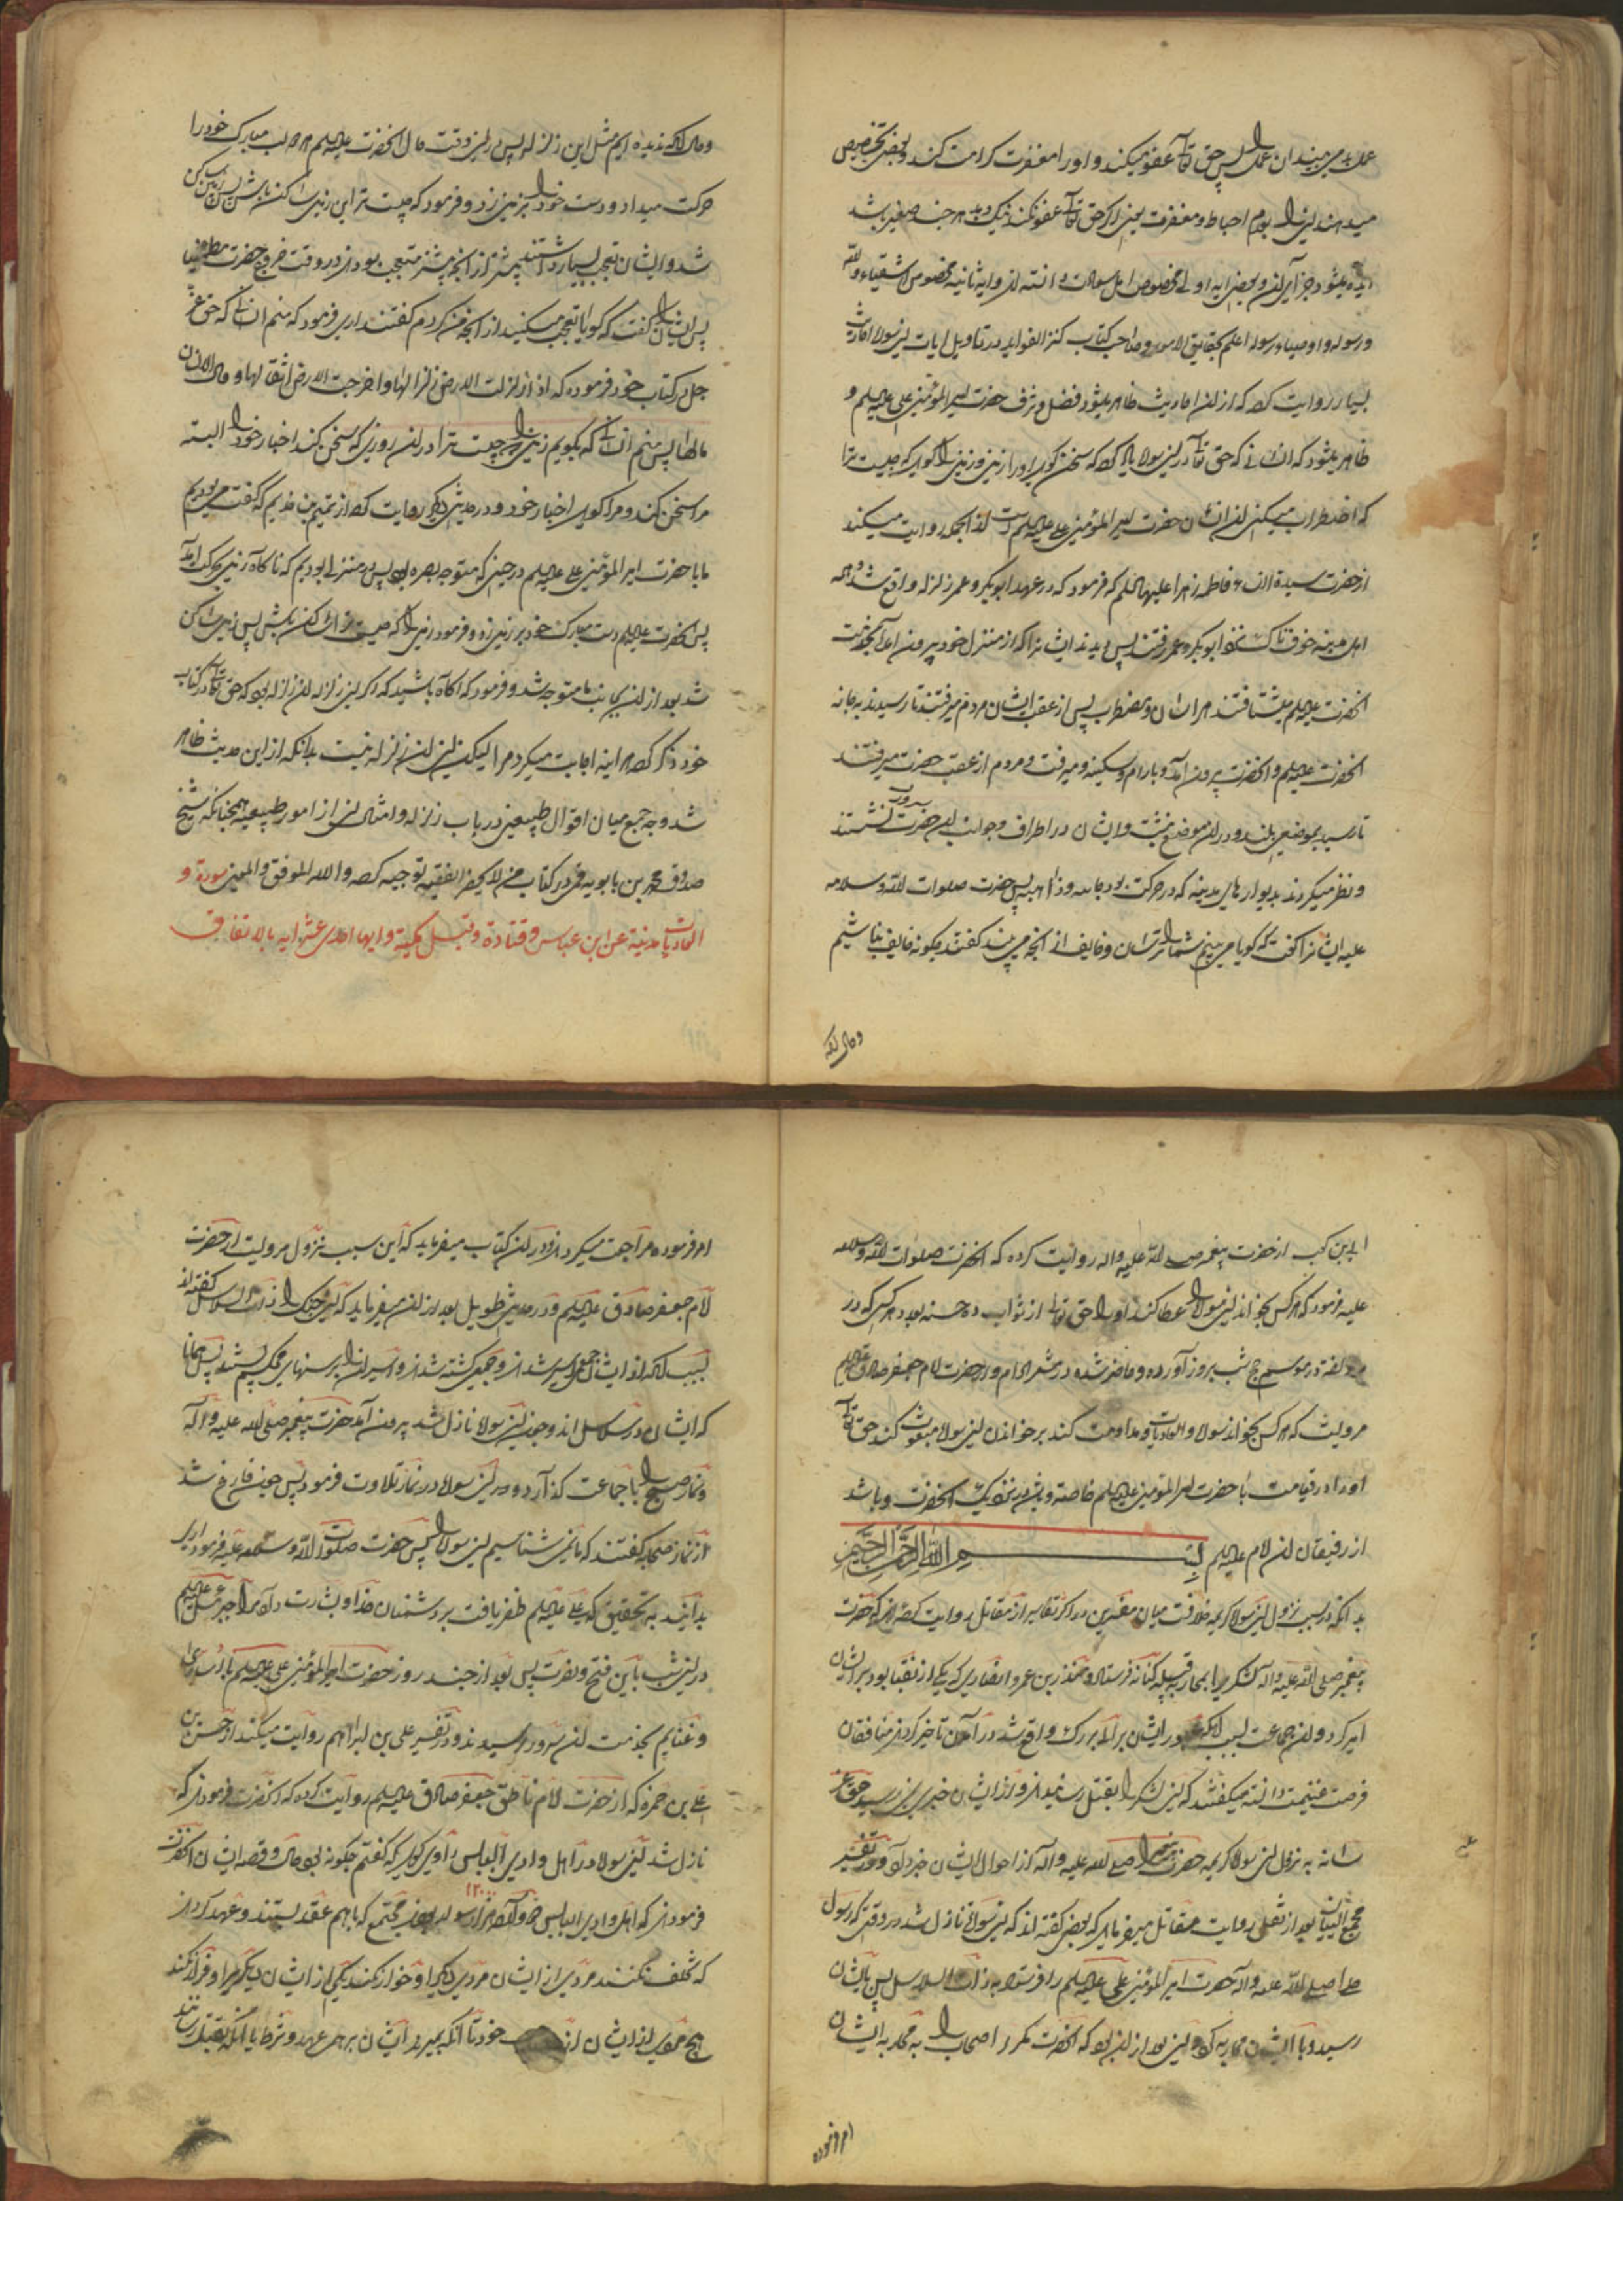 عمل بد می بیند ان عمل را پس حق تعالی عفو میکند و او را مغفرت کرامت کند و بعضی تخصیص
میدهند این را بعدم احباط و مغفرت یعنی اگر حق تعالی عفو نکند نیک و بد هر چند صغیر باشد
دیده میشود جزای ان و بعضی ایه اولی مخصوص اهل سعادت دانسته اند و ایه ثانیه مخصوص اشقیاء والله
ورسوله و اوصیاء رسوله اعلم بحقایق الامور و صاحب کتاب کنز الفواید در تاویل ایات این سوره احادیث
بسیار روایت کرده که از ان احادیث ظاهر میشود فضل و شرف حضرت امیر المؤمنین علی علیه السلم و
ظاهر میشود که انسانی که حق تعالی در این سوره یاد کرده که سخن کوید او را زمین و زمین را کوید که چیست ترا
که اضطراب میکنی ان انسان حضرت امیر المؤمنین علی علیه السلم است از انجمله روایت میکند
از حضرت سیدة النساء فاطمه زهرا علیها السلم که فرمود که در عهد ابوبکر و عمر زلزله واقع شد و همه
اهل مدینه خوفناک شدند ابوبکر و عمر رفتند پس دیدند ایشانرا که از منزل خود بیرون امده بخدمت
انحضرت علیه السلم میشتافتند هراسان و مضطرب پس از عقب ایشان مردم میرفتند تا رسیدند بدر خانه
انحضرت علیه السلم و انحضرت بیرون امد و بارام و سکینه و میرفت و مردم از عقب حضرت میرفتند
تا رسید بموضعی بلند و در ان موضع نشست و ایشان در اطراف و جوانب ان حضرت نشستند
و نظر میکردند بدیوارهای مدینه که در حرکت بود جاءیه و ذاهبه پس حضرت صلوات الله و سلامه
علیه ایشانرا کفت که کویا می بینم شما را ترسان و خایف از انچه می بیند کفتند چکونه خایف نباشیم
و حال انکه
و حال انکه ندیده ایم مثل این زلزله پس در این وقت حال انحضرت علیه السلم هر دو لب مبارک خود را
حرکت میداد و دست خود را بر زمین زد و فرمود که چیست ترا این زمین ساکن باش پس زمین ساکن
شد و ایشان تعجب بسیار داشتند بیشتر از انچه بیشتر متعجب بودند در وقت خروج حضرت مطمئنا
پس ایشان را کفت که کویا تعجب میکنید از انچه من کردم کفتند اری فرمود که منم ان انسانی که حق عز
جل در کتاب خود فرموده که اذا زلزلت الارض زلزالها و اخرجت الارض اثقالها و قال الانسان
مالها پس منم انسانی که بکویم زمین را چیست ترا در ان روزی که سخن کند اخبار خود را البته
مرا سخن کند و مرا کوید اخبار خود و در حدیثی دیکر روایت کرده از تمیم بن حذیم که کفت می بودیم
ما با حضرت امیر المؤمنین علی علیه السلم در حینی که متوجه بصره بود پس در منزلی بودیم که ناکاه زمین بحرکت امد
پس انحضرت علیه السلم دست مبارک خود بر زمین زد و فرمود زمین را که چیست ترا ساکن باش پس زمین ساکن
شد بعد از ان بجانب ما متوجه شد و فرمود که اکاه باشید که اکر این زلزله ان زلزله بود که حق تعالی در کتاب
خود ذکر کرده هر اینه اجابت میکرد مرا لیکن این ان زلزله نیست بدانکه از این حدیث ظاهر
شد وجه جمع میان اقوال طبیعین در باب زلزله و امثال ان از امور طبیعیه همچنانکه شیخ
صدوق محمد بن بابویه قمی در کتاب من لا یحضر الفقیه توجیه کرده والله الموفق والمعین سورة و
العادیات مدینة عن ابن عباس و قتادة و قیل مکیة و ایها احدی عشر ایه بالاتفاق
ابی بن کعب از حضرت پیغمبر صلی الله علیه واله روایت کرده که انحضرت صلوات الله وسلامه
علیه فرمود که هر کس بخواند این سوره را عطا کند او را حق تعالی از ثواب ده حسنه بعدد هر کس که در
مزدلفه در موسم حج شب بروز آورده و حاضر شده در مشعر الحرام و از حضرت امام جعفر صادق علیه السلم
مرویست که هر کس بخواند سوره والعادیات و مداومت کند بر خواندن این سوره مبعوث کند حق تعالی
او را در قیامت با حضرت امیر المؤمنین علیه السلم خاصه و بدر نزدیک انحضرت و باشد
از رفیقان ان امام علیه السلم بسم الله الرحمن الرحیم
بدانکه در سبب نزول این سوره کریمه خلافست میان مفسرین در اکثر تفاسیر از مقاتل روایت کرده اند که حضرت
پیغمبر صلی الله علیه واله لشکری را بمحاربه قبیله کنانه فرستاد و منذر بن عمرو انصاری که یکی از نقبا بود بر ایشان
امیر کرد و ان جماعت بسبب انکه عبور ایشان بر آب بزرک واقع شد در آمدن تاخیر کردند منافقان
فرصت غنیمت دانسته میکفتند که این لشکر را بقتل رسانیدند و از ایشان خبری نرسید حق عز
شانه به نزول این سوره کریمه حضرت پیغمبر را صلی الله علیه و آله از احوال ایشان خبر داد و در تفسیر
مجمع البیان بعد از نقل روایت مقاتل میفرماید که بعضی کفته اند که این سوره نازل شد در وقتی که رسول
خدا صلی الله علیه واله حضرت امیر المؤمنین علی علیه السلم را فرستاد به ذات السلاسل پس بایشان
رسید و با ایشان محاربه کرد و این بعد از ان بود که انحضرت مکرر اصحاب را به محاربه ایشان
امر فرموده
امر فرموده مراجعت میکردند و در ان کتاب میفرماید که این سبب نزول مرویست از حضرت
امام جعفر صادق علیه السلم و در حدیثی طویل بعد از ان میفرماید که این جنک را ذات السلاسل کفته اند
بسبب انکه از ایشان جمعی اسیر شدند و جمعی کشته شدند و اسیران را برسنهای محکم بستند پس همانا
که ایشان در سلاسل اند و چون این سوره نازل شد بیرون آمد حضرت پیغمبر صلی الله علیه و اله
و نماز صبح را با جماعت کذارد و در این سوره در نماز تلاوت فرمود پس چون فارغ شد
از نماز صحابه کفتند که ما نمی شناسیم این سوره را پس حضرت صلوات الله وسلامه علیه فرمود اری
بدانید به تحقیق که علی علیه السلم ظفر یافت بر دشمنان خدا و بشارت داد مرا جبرئیل علیه السلم
در این شب باین فتح و نصرت پس بعد از چند روز حضرت امیر المؤمنین علی علیه السلم با اسیران
و غنایم بخدمت ان سرور رسیدند و در تفسیر علی بن ابراهیم روایت میکند از حسن بن
علی بن حمزه که از حضرت امام ناطق جعفر صادق علیه السلم روایت کرده که انحضرت فرمودند که
نازل شد این سوره در اهل وادی الیابس راوی کوید که کفتم چکونه بود حال و قصه ایشان انحضرت
فرمودند که اهل وادی الیابس دوازده هزار سوار بودند مجتمع که باهم عقد بستند و عهد کردند
۱۲۰۰۰
که تخلف نکنند مردی از ایشان مردی دیکر را و خوار نکند یکی از ایشان دیکری را و فرار نکند
هیچ مردی از ایشان از خود تا انکه بمیرند ایشان بر همه عهد و شرط یا انکه بقتل رسانند